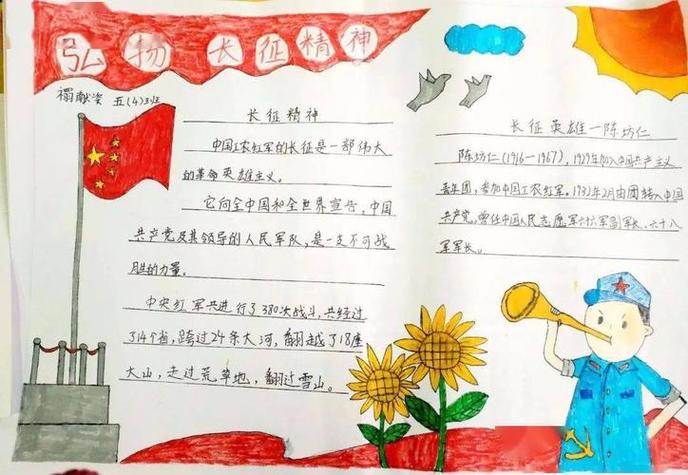 弘扬长征精神
禤献姿 五(4)班
长征精神
中国工农红军的长征是一部伟大
的革命英雄主义。
它向全中国和全世界宣告,中国
共产党及其领导的人民军队,是一支不可战
胜的力量。
中央红军共进行了380次战斗,共经过
了14个省,跨过24条大河,翻越了18座
大山,走过荒草地,翻过雪山。
长征英雄—陈坊仁
陈坊仁(1916—1967),1929年加入中国共产主义
青年团,参加中国工农红军。1932年2月由团转入中国
共产党,曾任中国人民志愿军六十六军副军长、六十八
军军长。